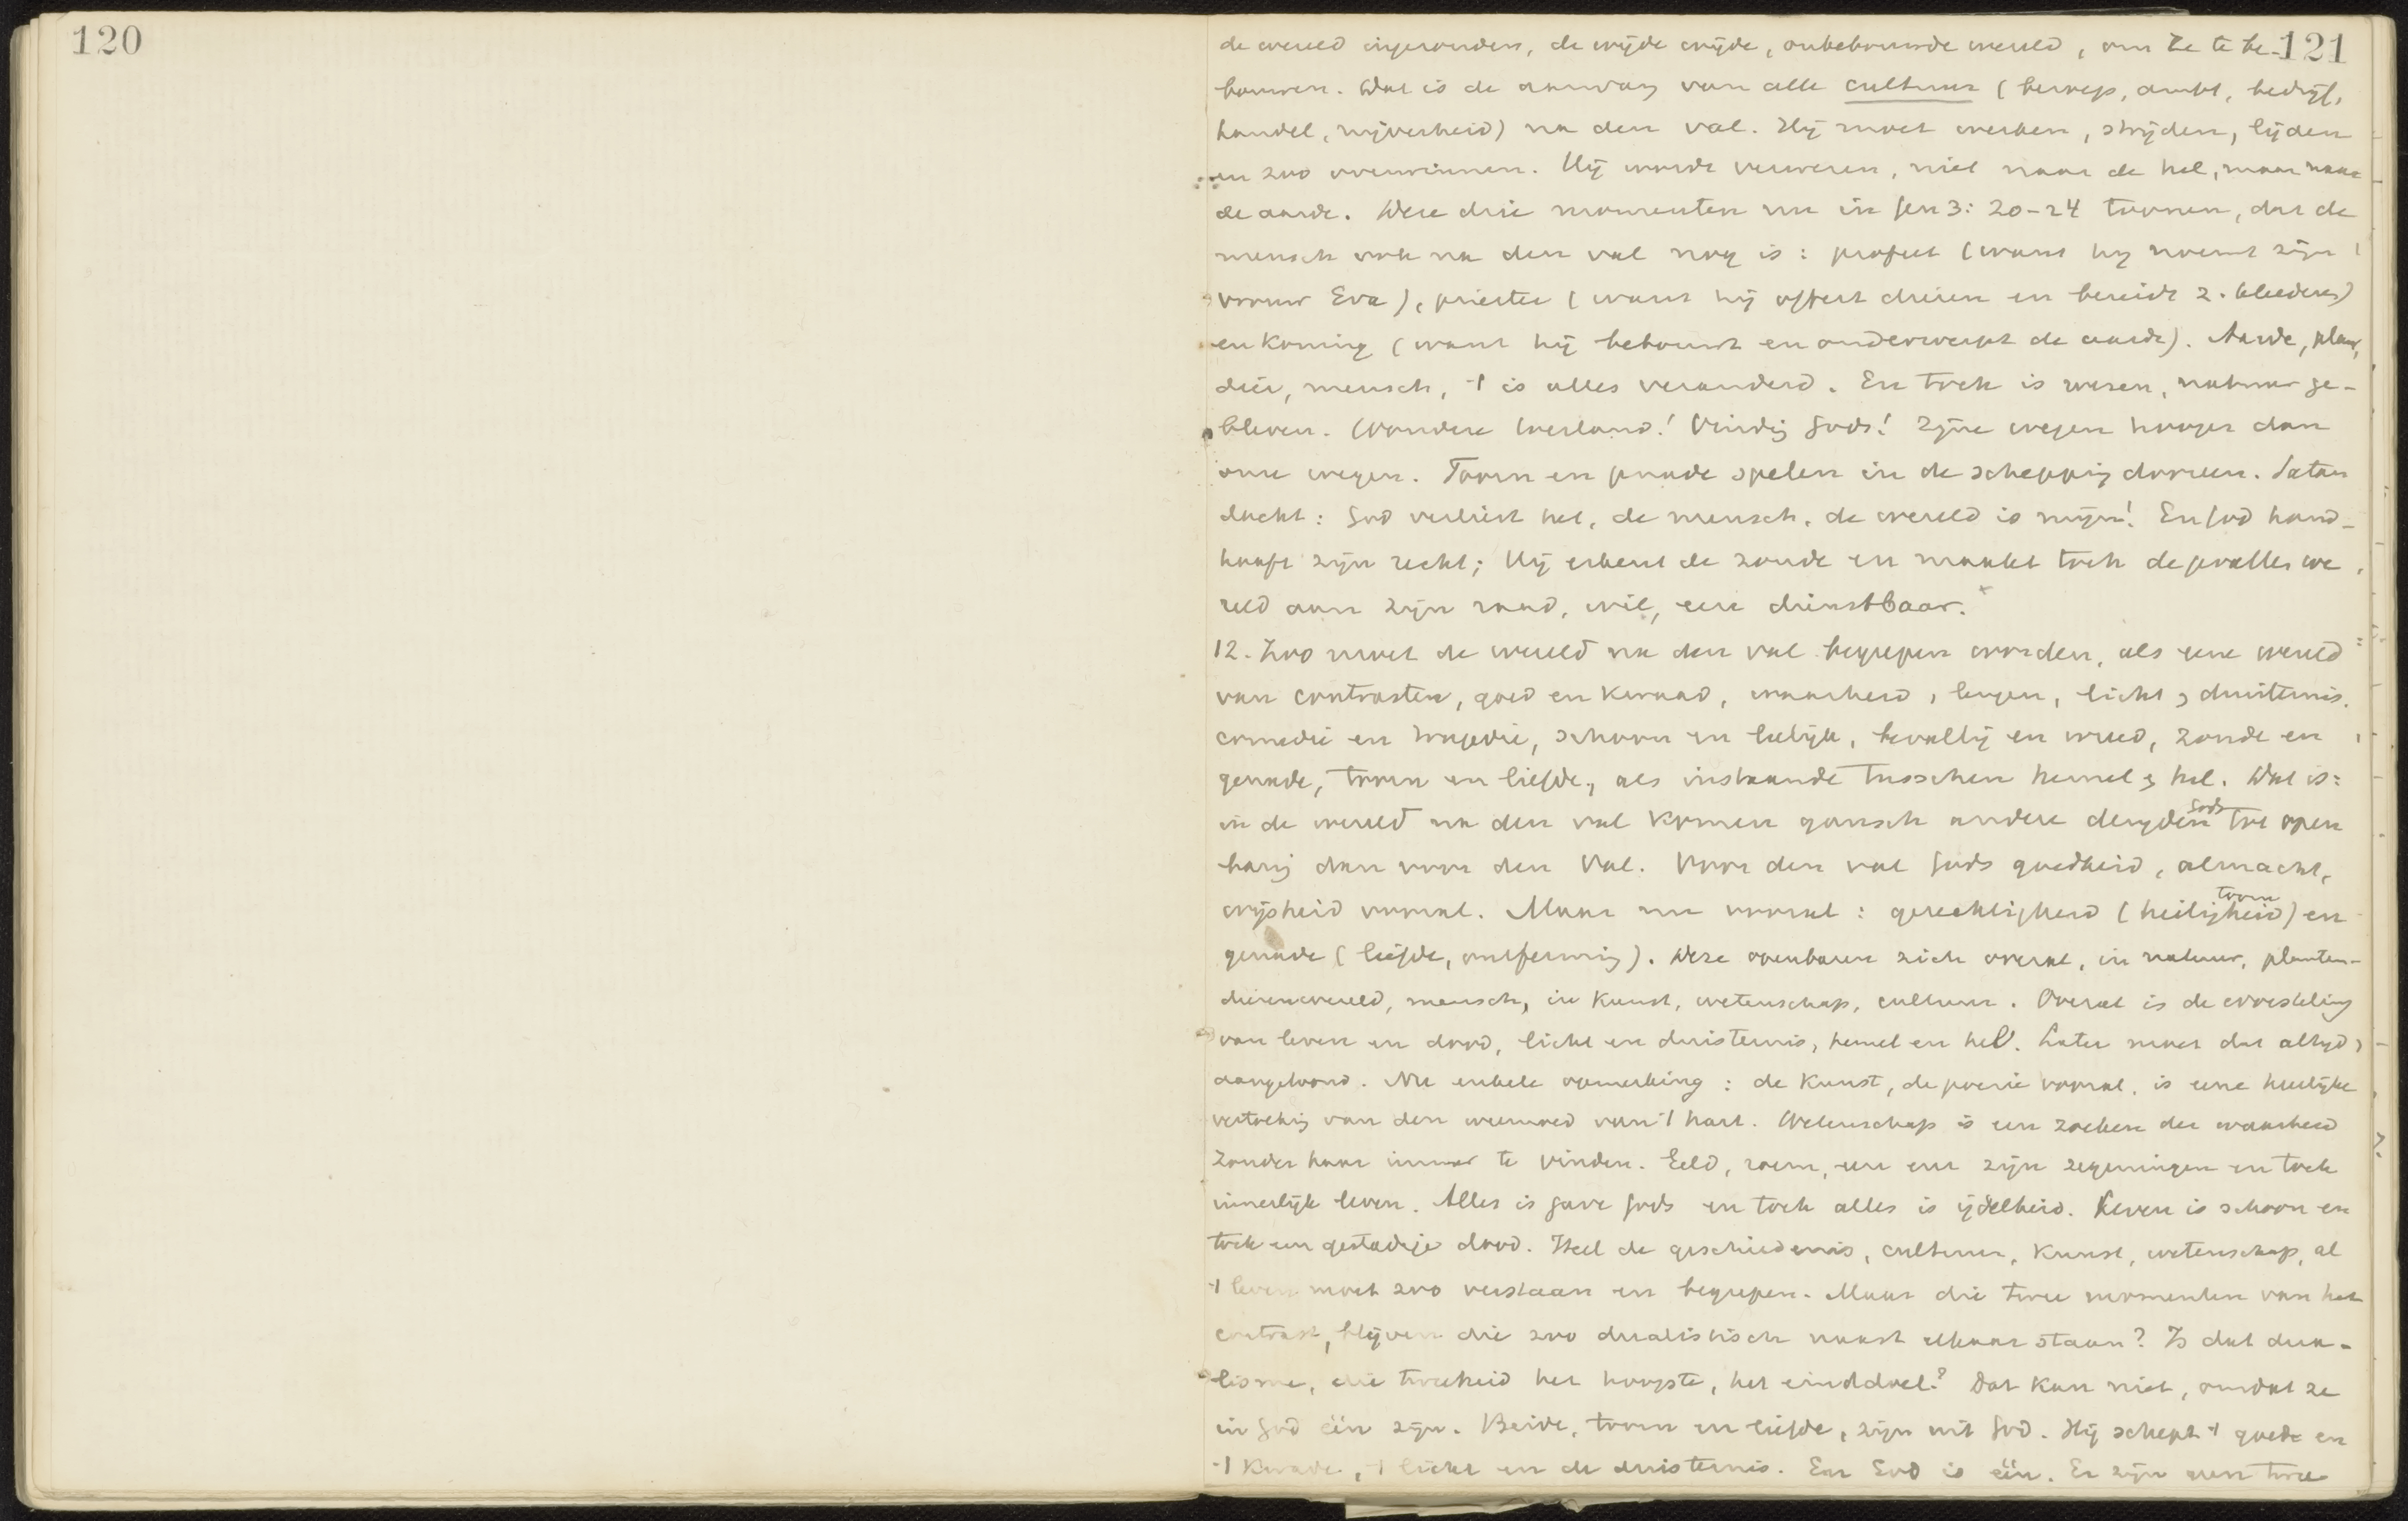 120
121
de wereld ingezonden, de wijde wijde, onbebouwde wereld, om ze te be-
bouwen. Dat is de aanvang van alle cultuur (beroep, ambt, bedrijf,
handel, nijverheid) na den val. Hij moet werken, strijden, lijden
en zoo overwinnen. Hij wordt verwezen, niet naar de hel, maar naar
de aarde. Deze drie momenten nu in Gen 3: 20-24 toonen, dat de
mensch ook na den val nog is: profeet (want hij noemt zijn
vrouw Eva), priester (want hij offert dieren en bereidt z. kleederen)
en Koning (want hij bebouwt en onderwerpt de aarde). Aarde, plant,
dier, mensch, 't is alles veranderd. En toch is wezen, natuur ge-
bleven. Wondere toestand! Vinding Gods! Zijne wegen hooger dan
onze wegen. Toorn en genade spelen in de schepping dooreen. Satan
dacht: God verliest het, de mensch, de wereld is mijn! En God hand-
haaft zijn recht; Hij erkent de zonde en maakt toch de gevallen we
reld aan zijn raad, wil, eer dienstbaar.
12. Zoo moet de wereld na den val begrepen worden, als eene wereld
van contrasten, goed en kwaad, waarheid, leugen, licht & duisternis,
comedie en tragedie, schoon en leelijk, bevallig en wreed, zonde en
genade, toorn en liefde, als instaande tusschen hemel & hel. Dat is:
in de wereld na den val komen gansch andere deugden Gods tot open
baring dan voor den Val. Voor den val Gods goedheid, almacht,
wijsheid vooral. Maar nu vooral: gerechtigheid (heiligheid toorn) en
genade (liefde, ontferming). Deze openbaren zich overal, in natuur, planten-
dierenwereld, mensch, in Kunst, wetenschap, cultuur. Overal is de worsteling
van leven en dood, licht en duisternis, hemel en hel. Later moet dat altijd
aangetoond. Nu enkele opmerking: de Kunst, de poezie vooral, is eene heerlijke
vertolking van den weemoed van 't hart. Wetenschap is een zoeken der waarheid
zonder haar immer te vinden. Geld, roem, eer enz zijn zegeningen en toch
innerlijk leven. Alles is gave Gods en toch alles is ijdelheid. Leven is schoon en
toch een gestadige dood. Heel de geschiedenis, cultuur, Kunst, wetenschap, al
't leven moet zoo verstaan en begrepen. Maar die twee momenten van het
contrast, blijven die zoo dualistisch naast elkaar staan? Is dat dua-
lisme, die tweeheid het hoogste, het einddoel? Dat kan niet, omdat ze
in God één zijn. Beide, toorn en liefde, zijn uit God. Hij schept 't goede en
't Kwade, 't licht en de duisternis. En God is één. Er zijn geen twee